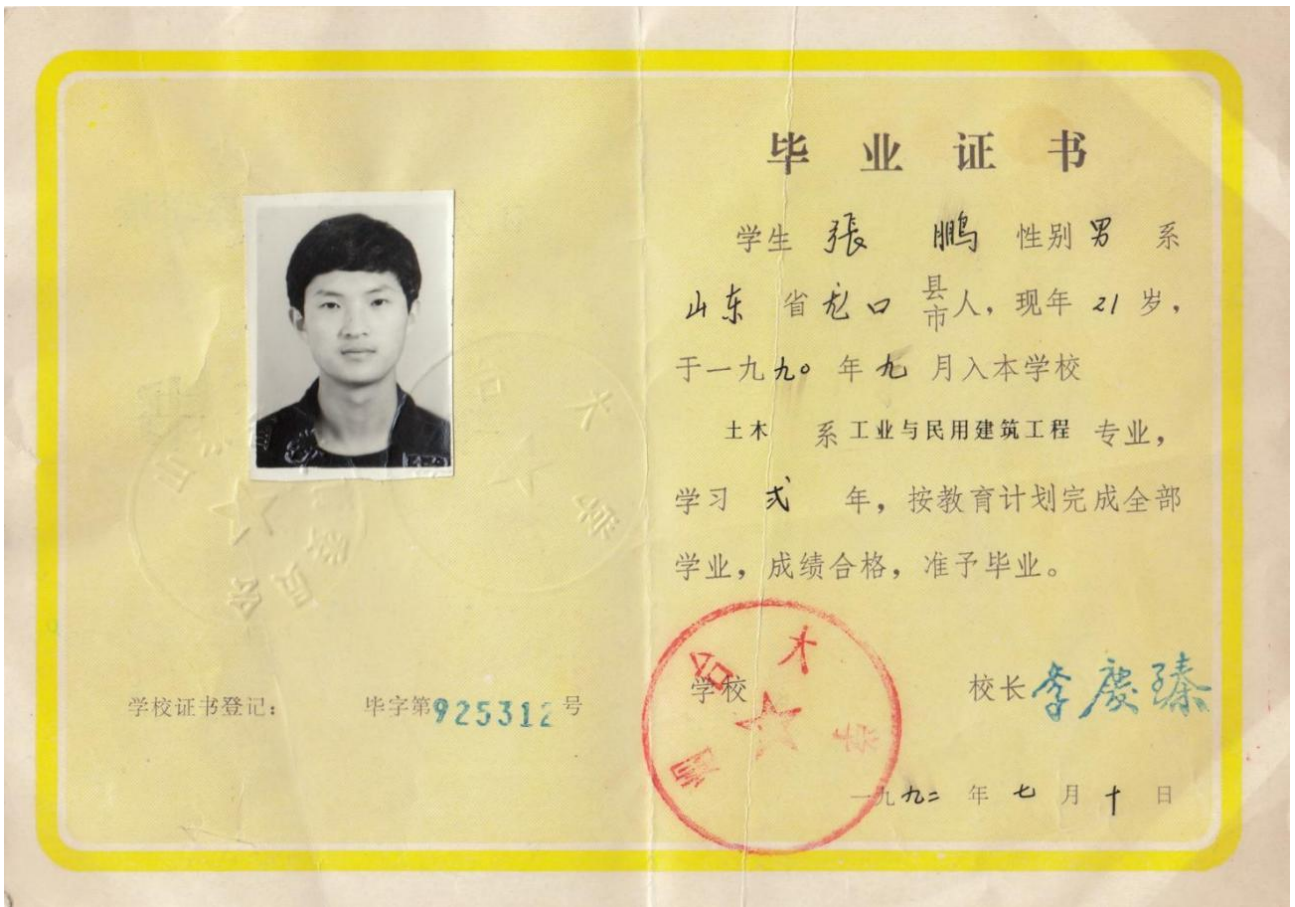 毕业证书
学生 張 鹏 性别 男 系
山东 省 龙口 县市人，现年 21 岁，
于一九九〇年九月入本学校
土木 系 工业与民用建筑工程 专业，
学习 弍 年，按教育计划完成全部
学业，成绩合格，准予毕业。
学校
校长 李慶臻
一九九二年七月十日
学校证书登记： 毕字第925312号
烟台大学